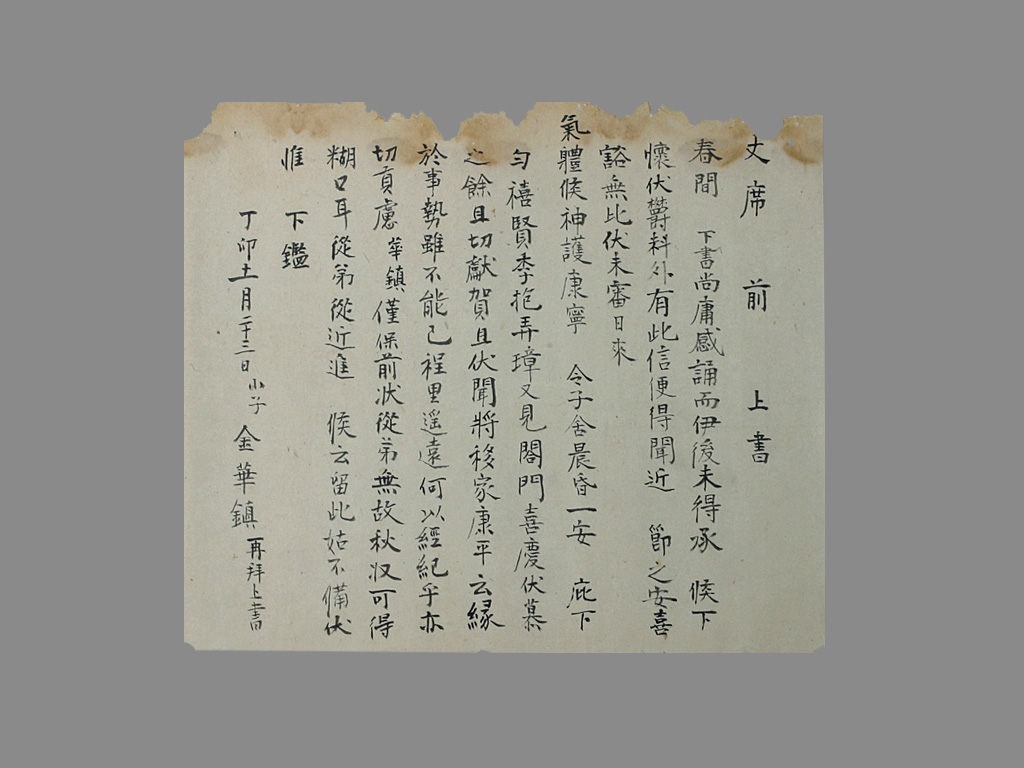 丈席 前 上書
春間 下書尙庸感誦而伊後未得承 候下
懷伏欝料外有此信便得聞近 節之安喜
豁無比伏未審日來
氣體候神護康寧 令子舍晨昏一安 庇下
勻禧賢季抱弄璋又見閤門喜慶伏慕
之餘且切獻賀且伏聞將移家康平云緣
於事勢雖不能已程里遥遠何以經紀乎亦
切貢慮華鎮僅保前狀從弟無故秋收可得
糊口耳從弟從近進 候云留此姑不備伏
惟 下鑑
丁卯十一月二十三日 小子 金華鎮 再拜上書